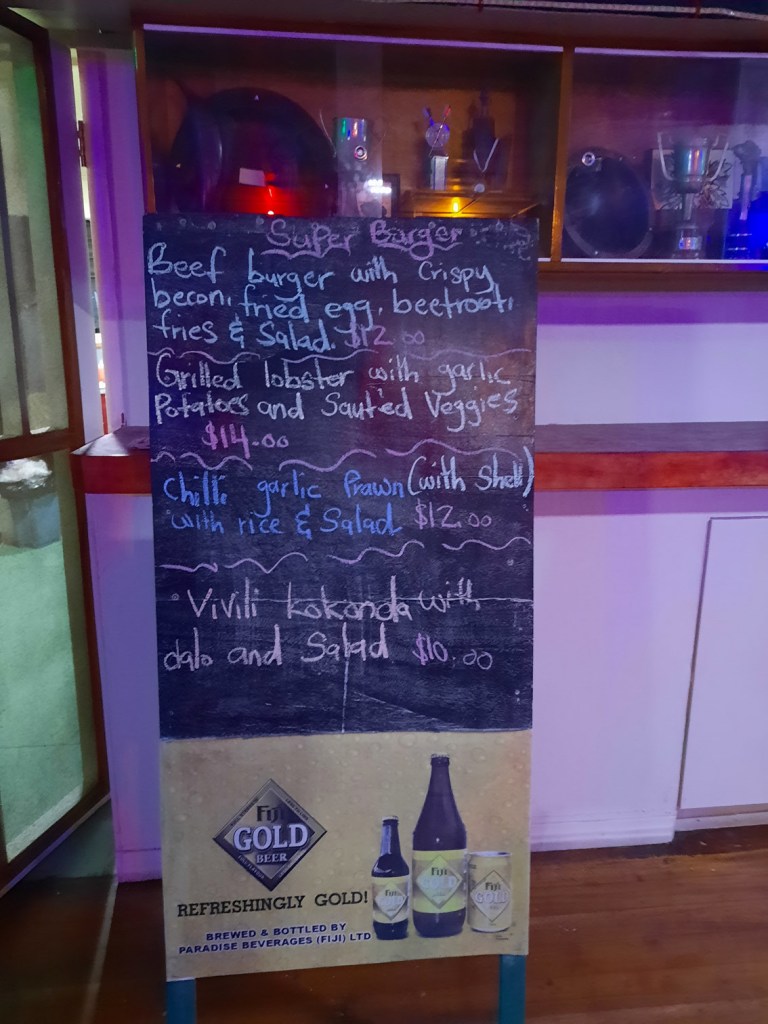 Super Burger
Beef burger with Crispy
becon, fried egg, beetroot,
fries & Salad. $12.00
Grilled lobster with garlic
Potatoes and Saut'ed Veggies
$14.00
Chilli garlic Prawn (with Shell)
with rice & Salad $12.00
Vivili kokonda with
dalo and Salad $10.00
FIJI
GOLD
BEER
REFRESHINGLY GOLD!
BREWED & BOTTLED BY
PARADISE BEVERAGES (FIJI) LTD
FIJI
GOLD
FIJI
GOLD
FIJI
GOLD